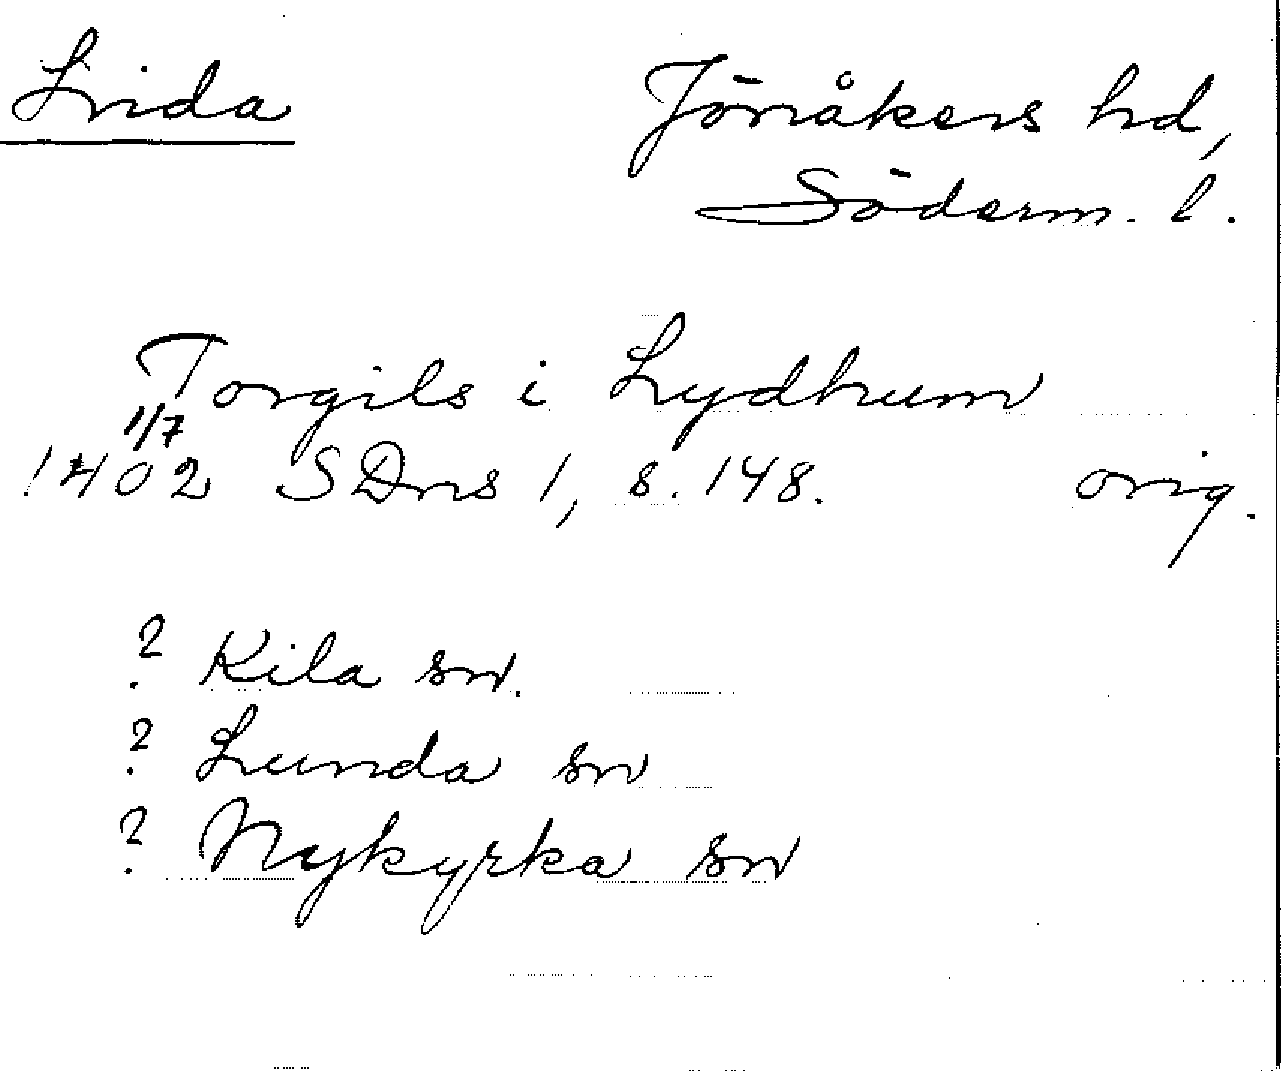 Lida
Jönåkers hd,
Söderm. l.
Torgils i Lydhum
1/7
1402 SDns 1, s. 148. orig.
? Kila sn.
? Lunda sn
? Nykyrka sn